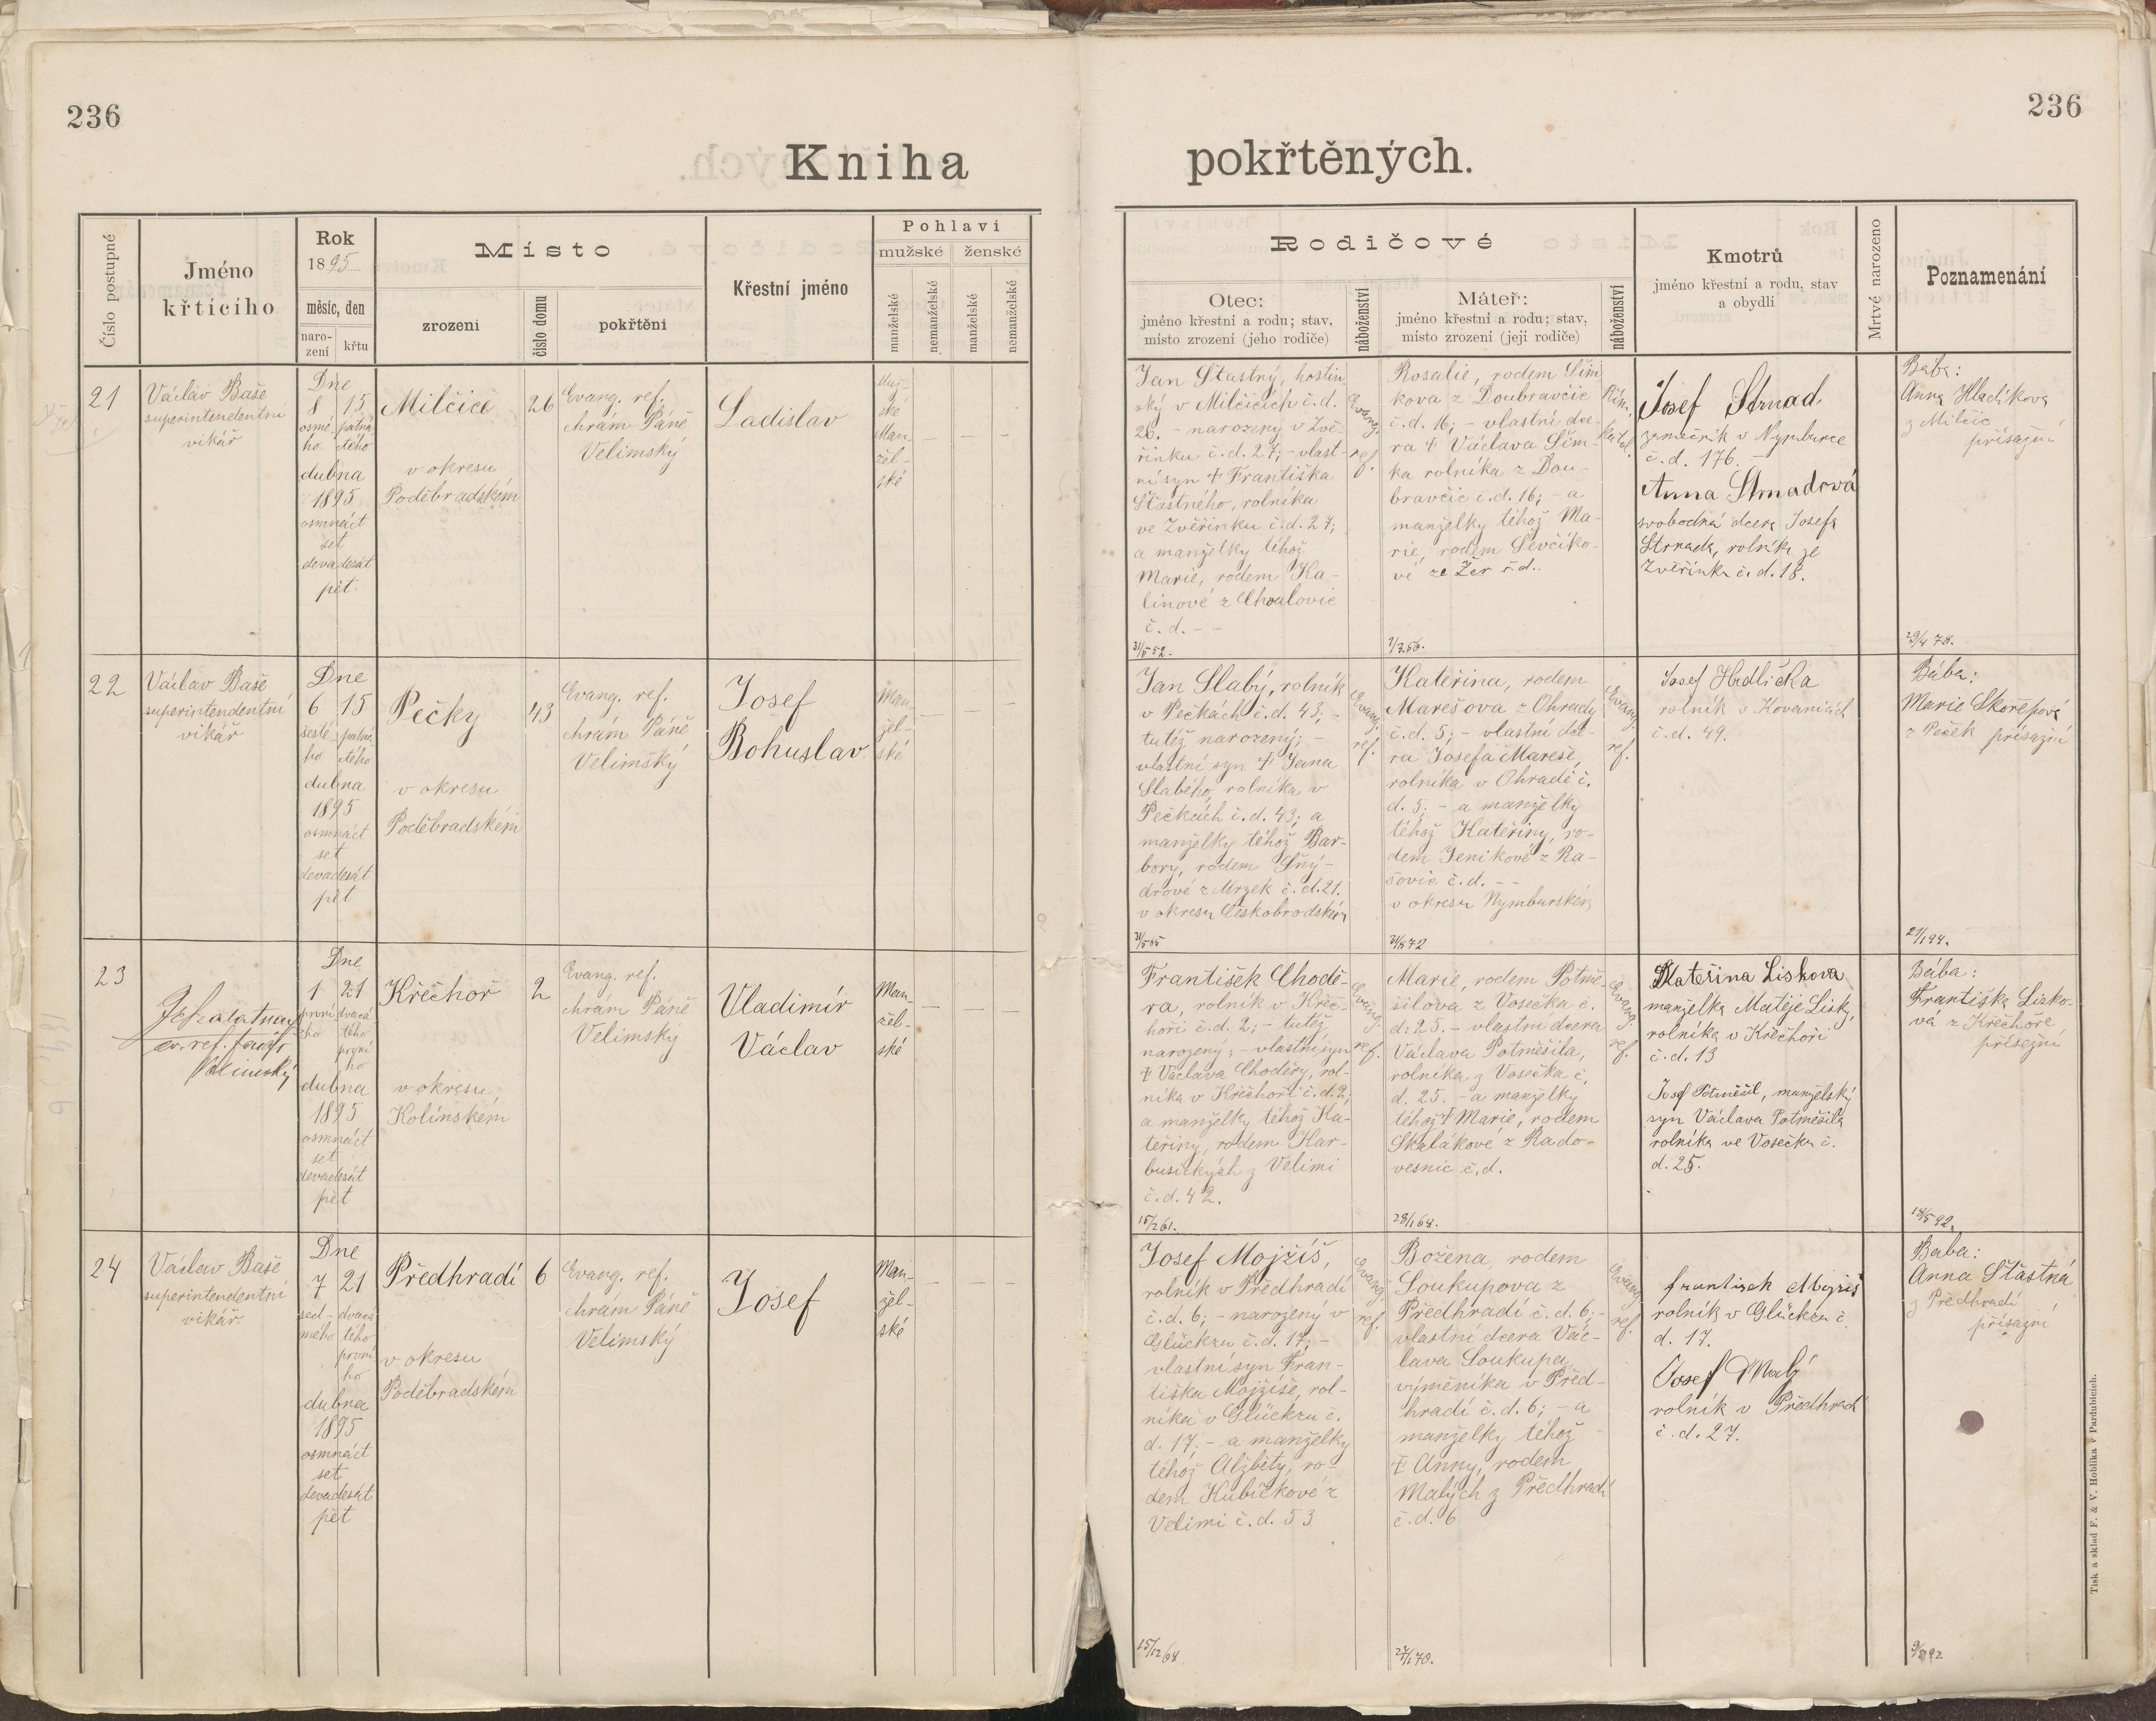 236
236
Kniha
pokřtěných.
Číslo postupné
Jméno
křtícího
Rok
1895
měsíc, den
naro-
zení
křtu
Místo
zrození
číslo domu
pokřtěni
Křestní jméno
Pohlaví
mužské
ženské
manželské
nemanželské
manželské
nemanželské
Rodičové
Otec:
jméno křestní a rodu; stav,
místo zrození (jeho rodiče)
náboženství
Máteř:
jméno křestní a rodu; stav,
místo zrození (její rodiče)
náboženství
Kmotrů
jméno křestní a rodu, stav
a obydlí
Mrtvě narozeno
Poznamenání
21
Václav Baše
superintendentní
vikář
Dne
8 15
osmé- patná-
ho ctého
dubna
1895
osmnáct
set
devadesát
pět.
Milčice
v okresu
Poděbradském
26
Evang. ref.
chrám Páně
Velimský
Ladislav
Muž-
ské
Man-
žel-
ské
— — —
Jan Šťastný, hostin-
ský v Milčicích č.d.
26. - narozený v Zvě-
řínku č.d. 27; - vlast-
ní syn † Františka
Šťastného, rolníka
ve Zvěřínku č.d. 27;
a manželky téhož
Marie, rodem Ka-
linové z Chvalovic
č.d. - -
31/5 52.
Evang.
ref.
Rosalie, rodem Šim-
kova z Doubravčic
č.d. 16; - vlastní dce-
ra † Václava Šim-
ka rolníka z Dou-
bravčic č.d. 16; - a
manželky téhož Ma-
rie, rodem Ševčíko-
vé ze Žer č.d..
Řím.
katol.
Josef Strnad
zámečník v Nymburce
č.d. 176.
Anna Strnadová
svobodná dcera Josefa
Strnada, rolníka ze
Zvěřínka č.d. 18.
Bába:
Anna Hladíkova
z Milčic
přísažní
29/4 78.
22
Václav Baše
superintendentní
vikář
Dne
6 15
šesté- patná-
ho ctého
dubna
1895
osmnáct
set
devadesát
pět
Pečky
v okresu
Poděbradském
43
Evang. ref.
chrám Páně
Velimský
Josef
Bohuslav
Man-
žel-
ské
— — —
Jan Slabý, rolník
v Pečkách č.d. 43; -
tutéž narozený; -
vlastní syn † Jana
Slabého, rolníka v
Pečkách č.d. 43; a
manželky téhož Bar-
bory, rodem Šný-
drové z Mrzek č.d. 21.
v okresu Českobrodském
Evang.
ref.
Kateřina, rodem
Marešova z Ohrady
č.d. 5; - vlastní dce-
ra Josefa Mareše,
rolníka v Ohradě č.
d. 5; - a manželky
téhož Kateřiny, ro-
dem Jeníkové z Ra-
šovic č.d. - -
v okresu Nymburském
Evang.
ref.
Josef Hrdlička
rolník v Kovanicích
č.d. 49.
Bába:
Marie Skořepová
z Peček přísažní
23
ev. ref. farář
Velimský
Dne
1 21
první- dvacá-
ho tého
první-
ho
dubna
1895
osmnáct
set
devadesát
pět
Křečhoř
v okresu
Kolínském
2
Evang. ref.
chrám Páně
Velimský
Vladimír
Václav
Man-
žel-
ské
— — —
František Chodě-
ra, rolník v Křeč-
hoři č.d. 2; - tutéž
narozený; - vlastní syn
† Václava Choděry, rol-
níka v Křečhoři č.d. 2;
a manželky téhož Ka-
teřiny, rodem Kar-
busických z Velimi
č.d. 42.
Evang.
ref.
Marie, rodem Potmě-
šilova z Vosečka č.
d. 25. - vlastní dcera
Václava Potměšila,
rolníka z Vosečka č.
d. 25. - a manželky
téhož † Marie, rodem
Skalákové z Rado-
vesnic č.d.
28/1 68.
Evang.
ref.
Kateřina Liskova
manželka Matěje Lisky,
rolníka v Křečhoři
č.d. 13
Josef Potměšil, manželský
syn Václava Potměšila
rolníka ve Vosečku č.
d. 25.
Bába:
Františka Lisko-
vá z Křečhoře
přísažní
18/5 92.
24
Václav Baše
superintendentní
vikář.
Dne
7 21
sed- dvacá-
mého tého
první-
ho
dubna
1895
osmnáct
set
devadesát
pět
Předhradí
v okresu
Poděbradském
6
Evang. ref.
chrám Páně
Velimský
Josef
Man-
žel-
ské
— — —
Josef Mojžíš,
rolník v Předhradí
č.d. 6; - narozený v
Glückzu č.d. 17; -
vlastní syn Fran-
tiška Mojžíše, rol-
níka v Glückzu č.
d. 17; - a manželky
téhož Alžběty, ro-
dem Kubíčkové z
Velimi č.d. 53
15/12 68
Evang.
ref.
Božena, rodem
Soukupova z
Předhradí č.d. 6; -
vlastní dcera Vác-
lava Soukupa,
výměníka v Před-
hradí č.d. 6; - a
manželky téhož
† Anny, rodem
Malých z Předhradí
č.d. 6
27/1 70.
Evang.
ref.
frantisek Mojžiš
rolník v Glückzu č.
d. 17.
Josef Malý
rolník v Předhradí
č.d. 27.
Bába:
Anna Šťastná
z Předhradí
přísažní
Tisk a sklad F. & V. Hoblíka v Pardubicích.